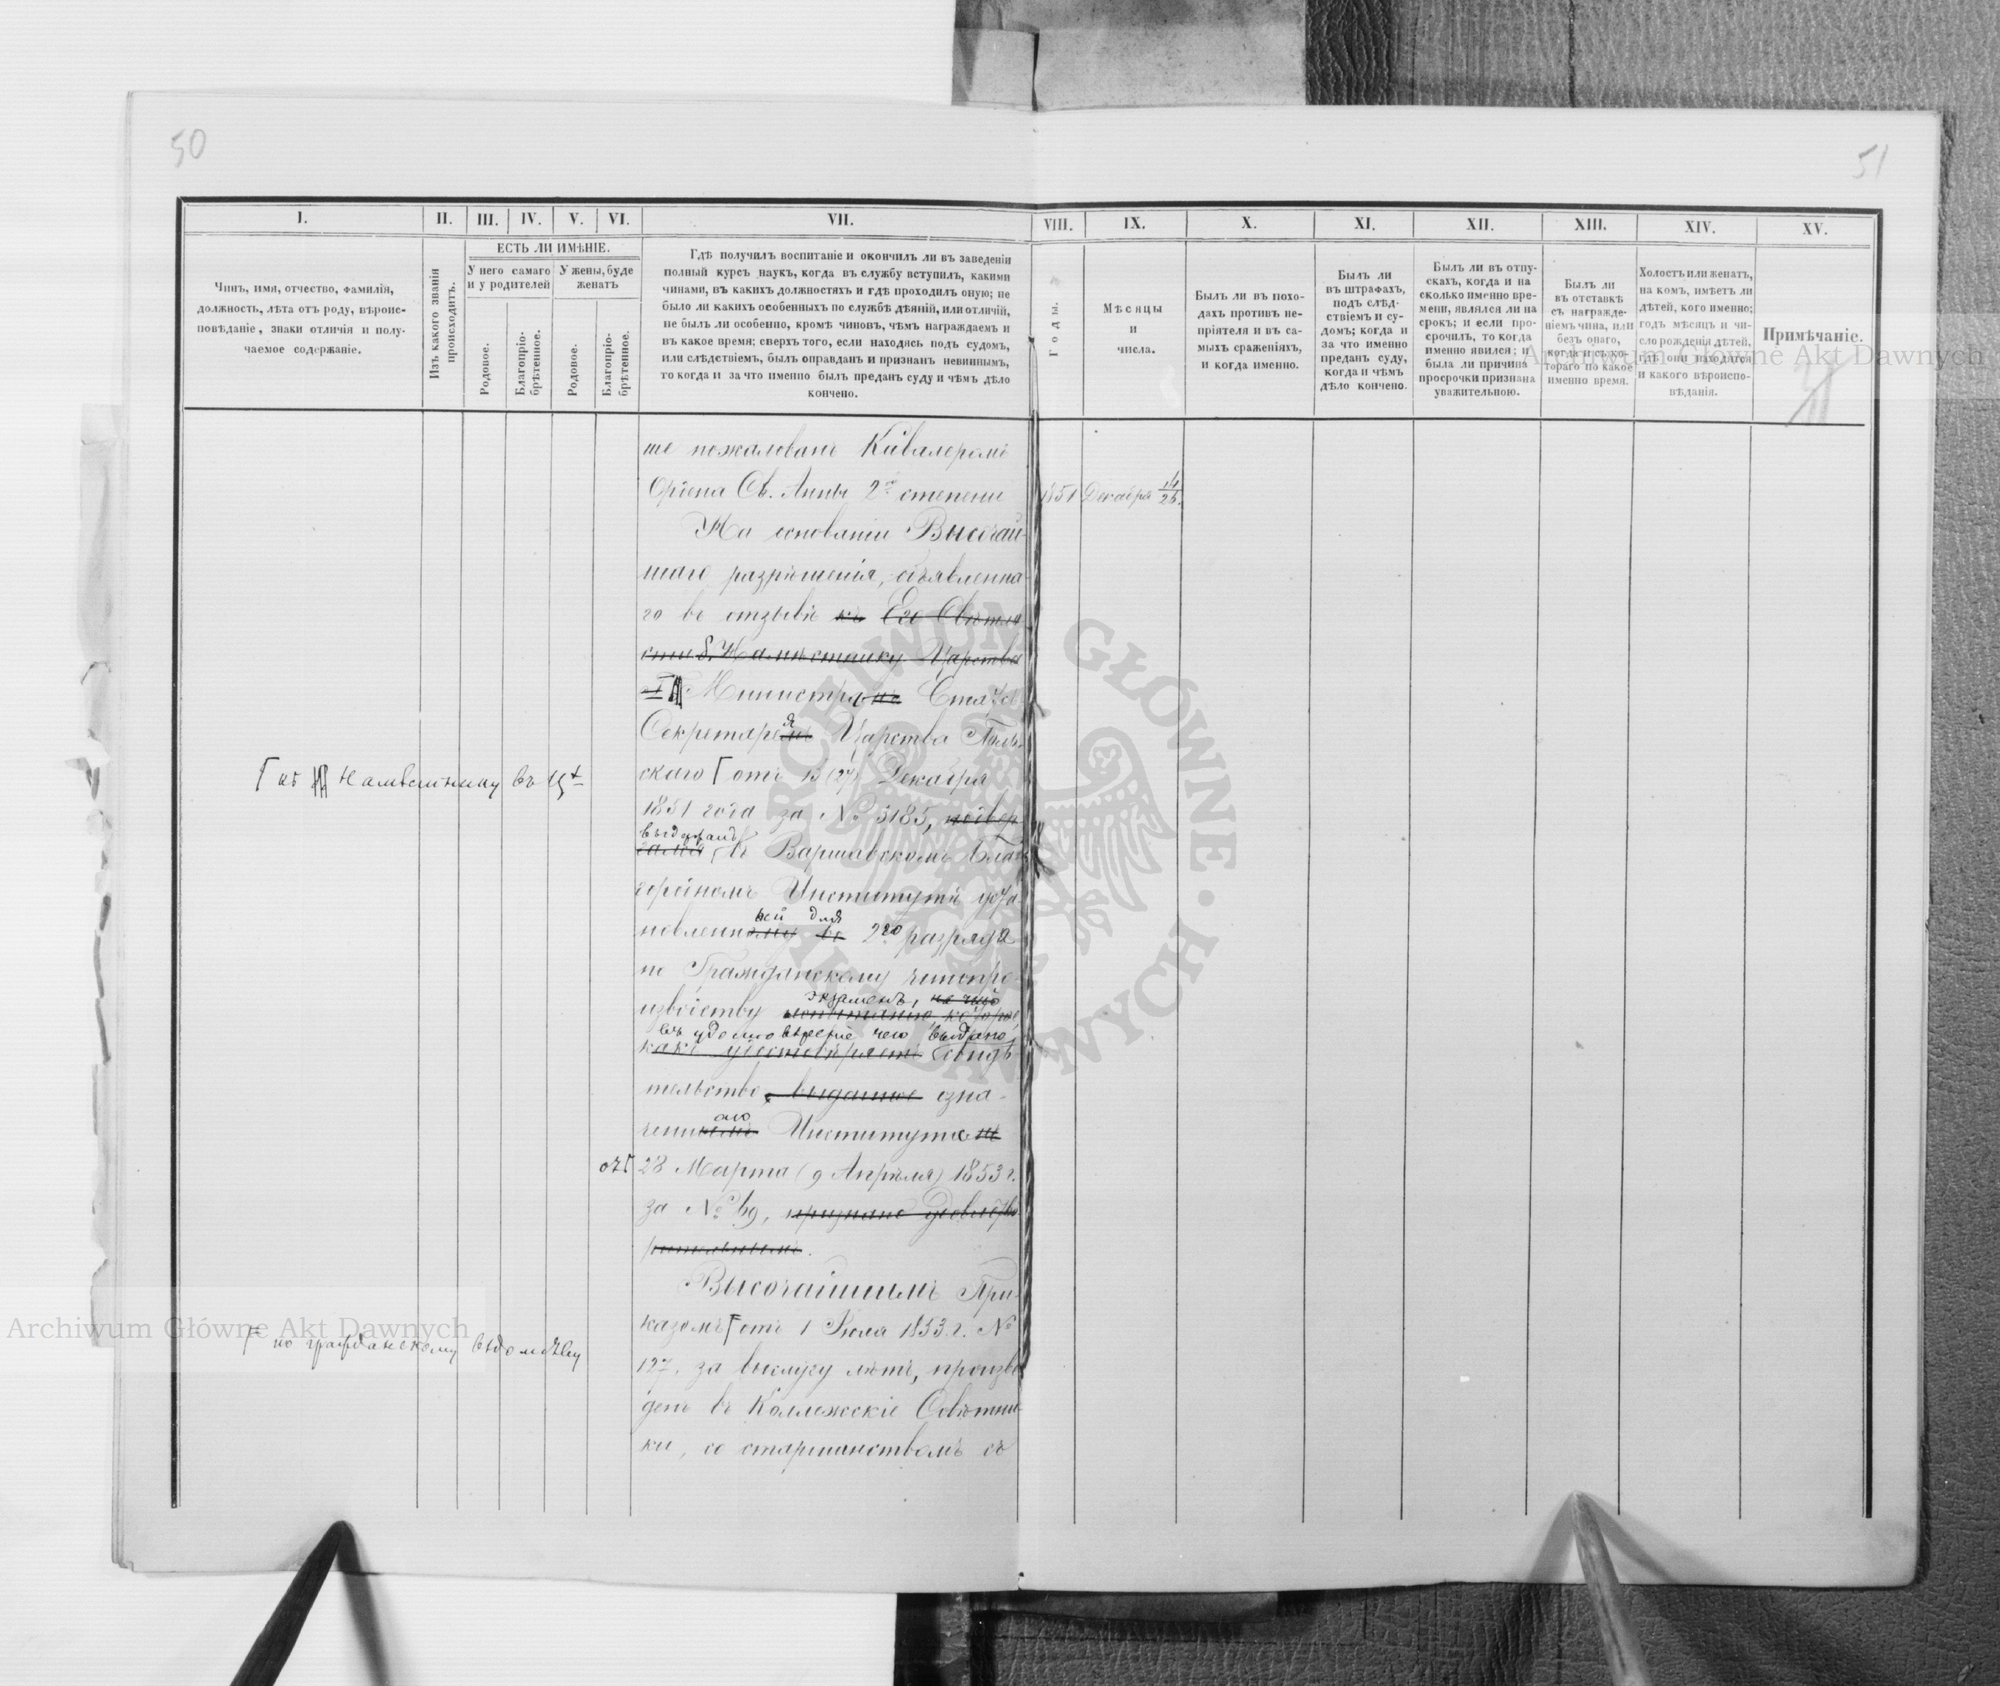 50
51
I.
II.
III.
IV.
V.
VI.
VII.
VIII.
IX.
X.
XI.
XII.
XIII.
XIV.
XV.
Чинъ, имя, отчество, фамилія,
должность, лѣта отъ роду, вѣроис-
повѣданіе, знаки отличія и полу-
чаемое содержаніе.
Изъ какого званія
происходитъ.
ЕСТЬ ЛИ ИМѢНІЕ.
У него самаго
и у родителей
У жены, буде
женатъ
Родовое.
Благопріо-
брѣтенное.
Родовое.
Благопріо-
брѣтенное.
Гдѣ получилъ воспитаніе и окончилъ ли въ заведеніи
полный курсъ наукъ, когда въ службу вступилъ, какими
чинами, въ какихъ должностяхъ и гдѣ проходилъ оную; не
было ли какихъ особенныхъ по службѣ дѣяній, или отличій,
не былъ ли особенно, кромѣ чиновъ, чѣмъ награждаемъ и
въ какое время; сверхъ того, если находясь подъ судомъ,
или слѣдствіемъ, былъ оправданъ и признанъ невиннымъ,
то когда и за что именно былъ преданъ суду и чѣмъ дѣло
кончено.
Годы.
Мѣсяцы
и
числа.
Былъ ли въ похо-
дахъ противъ не-
пріятеля и въ са-
мыхъ сраженіяхъ,
и когда именно.
Былъ ли
въ штрафахъ,
подъ слѣд-
ствіемъ и су-
домъ; когда и
за что именно
преданъ суду,
когда и чѣмъ
дѣло кончено.
Былъ ли въ отпу-
скахъ, когда и на
сколько именно вре-
мени, являлся ли на
срокъ; и если про-
срочилъ, то когда
именно явился; и
была ли причина
просрочки признана
уважительною.
Былъ ли
въ отставкѣ
съ награжде-
ніемъ чина, или
безъ онаго,
когда и съ ко-
тораго по какое
именно время.
Холостъ или женатъ,
на комъ, имѣетъ ли
дѣтей, кого именно;
годъ мѣсяцъ и чи-
сло рожденія дѣтей,
гдѣ они находятся
и какого вѣроиспо-
вѣданія.
Примѣчаніе.
ше пожалованъ Кавалеромъ
Ордена Св. Анны 2й степени
1851 Декабря 14/26.
На основаніи Высочай-
шаго разрѣшенія, объявленна-
го въ отзывѣ къ Его Свѣтло
сти Г. Намѣстнику Царства
Министра Статсъ
Секретаря Царства Поль-
скаго отъ 15 (27) Декабря
Намѣстнику въ Ц.
1851 года за № 3185,
выдержалъ
въ Варшавскомъ Бла-
городномъ Институтѣ уста-
ной для
новленномъ во 2го разряда
по Гражданскому чинопро-
экзаменъ, на что
изводству
въ удостовѣреніе чего выдано
какъ удостовѣряетъ свидѣ-
тельство, выданное озна-
аго
ченнымъ Института
отъ 28 Марта (9 Апрѣля) 1853 г.
за № 69, признано удовлетво
рительнымъ.
Высочайшимъ При-
казомъ отъ 1 Іюля 1853 г. №
по гражданскому вѣдомству
127, за выслугу лѣтъ, произве
денъ въ Коллежскіе Совѣтни-
ки, со старшинствомъ съ
Archiwum Główne Akt Dawnych
Archiwum Główne Akt Dawnych
ARCHIWUM GŁÓWNE · AKT DAWNYCH ·